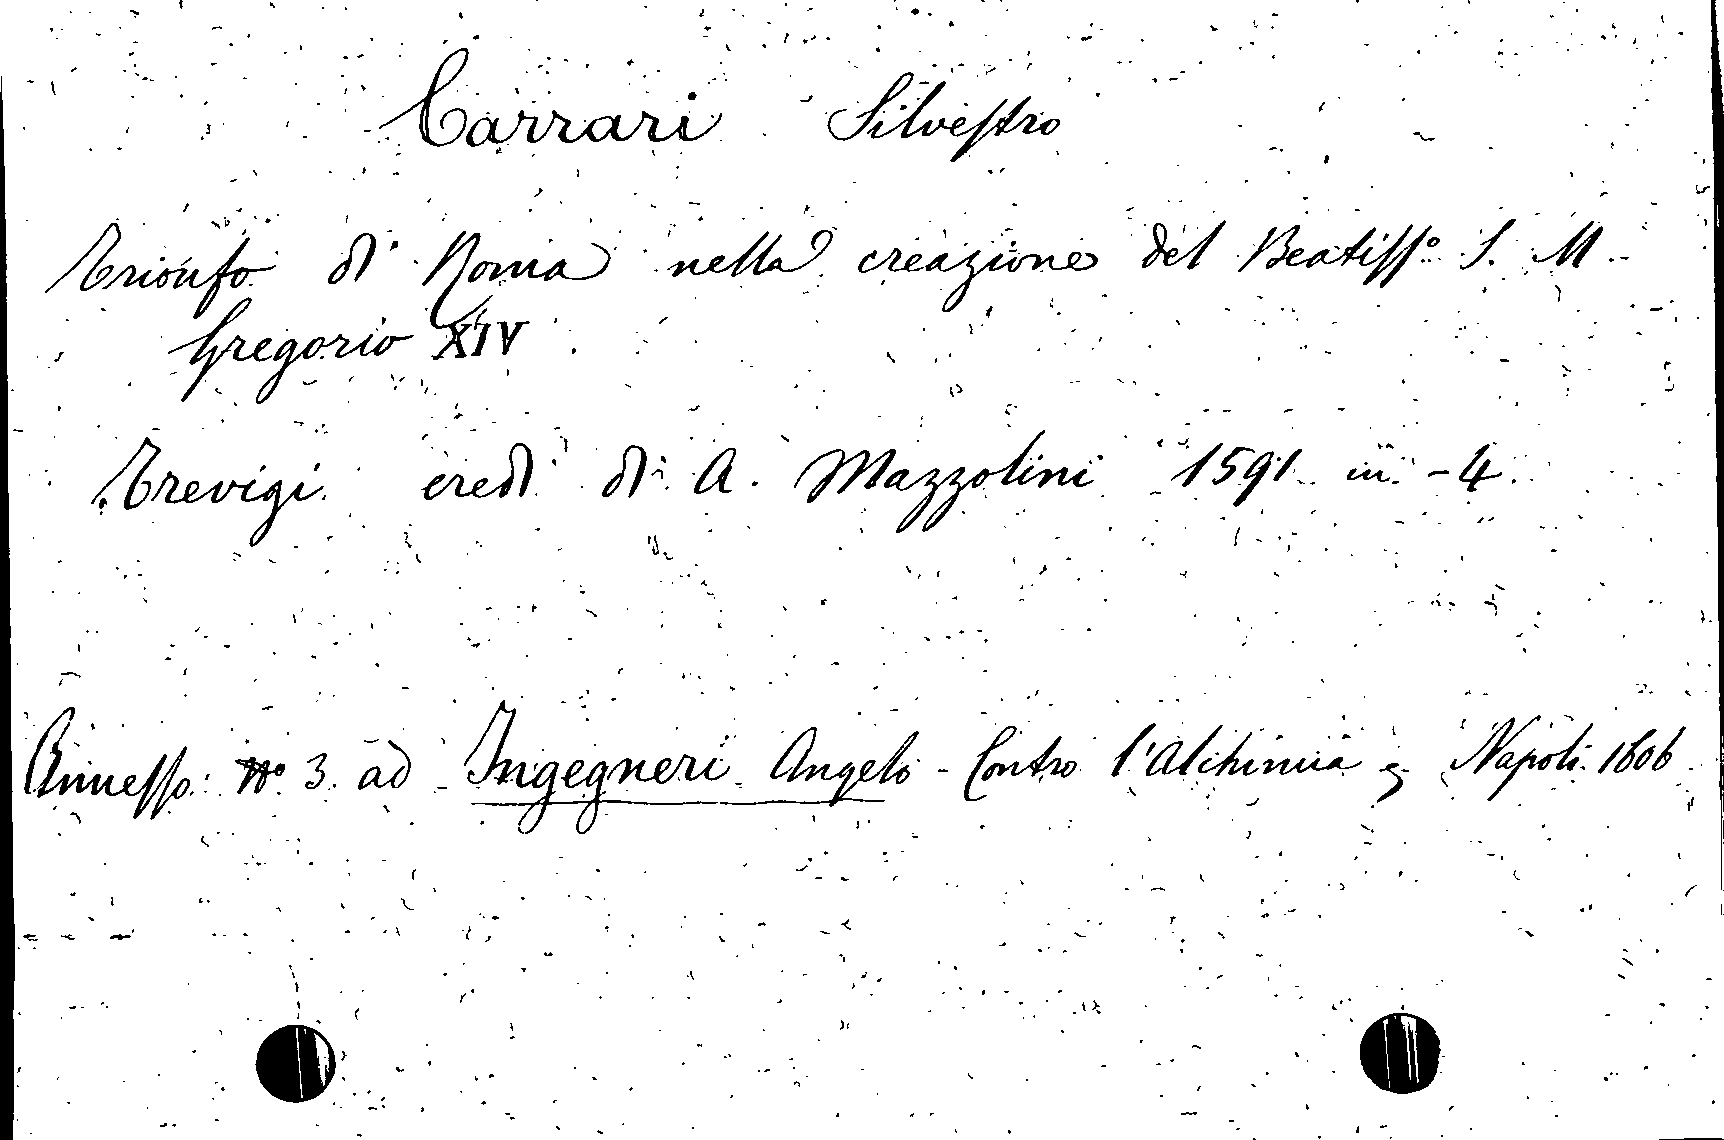 Carrari Silvestro
Trionfo di Roma nella creazione del Beatiss.º S. M.
Gregorio XIV
Trevigi eredi di A. Mazzolini 1591 in-4
Annesso: Nº 3 ad Ingegneri Angelo - Contro l'Alchimia Napoli 1606